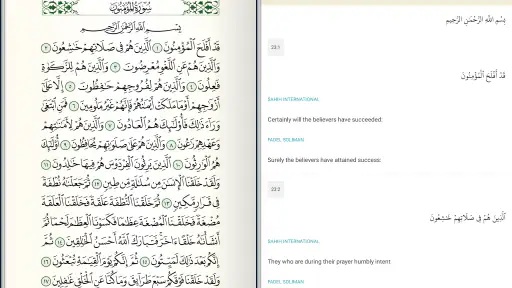 سُورَةُ المُؤْمِنُون
بِسْمِ اللَّهِ الرَّحْمَٰنِ الرَّحِيمِ
قَدْ أَفْلَحَ الْمُؤْمِنُونَ ١ الَّذِينَ هُمْ فِي صَلَاتِهِمْ خَاشِعُونَ ٢
وَالَّذِينَ هُمْ عَنِ اللَّغْوِ مُعْرِضُونَ ٣ وَالَّذِينَ هُمْ لِلزَّكَاةِ
فَاعِلُونَ ٤ وَالَّذِينَ هُمْ لِفُرُوجِهِمْ حَافِظُونَ ٥ إِلَّا عَلَىٰ
أَزْوَاجِهِمْ أَوْ مَا مَلَكَتْ أَيْمَانُهُمْ فَإِنَّهُمْ غَيْرُ مَلُومِينَ ٦ فَمَنِ ابْتَغَىٰ
وَرَاءَ ذَٰلِكَ فَأُولَٰئِكَ هُمُ الْعَادُونَ ٧ وَالَّذِينَ هُمْ لِأَمَانَاتِهِمْ
وَعَهْدِهِمْ رَاعُونَ ٨ وَالَّذِينَ هُمْ عَلَىٰ صَلَوَاتِهِمْ يُحَافِظُونَ ٩ أُولَٰئِكَ
هُمُ الْوَارِثُونَ ١٠ الَّذِينَ يَرِثُونَ الْفِرْدَوْسَ هُمْ فِيهَا خَالِدُونَ ١١
وَلَقَدْ خَلَقْنَا الْإِنسَانَ مِن سُلَالَةٍ مِّن طِينٍ ١٢ ثُمَّ جَعَلْنَاهُ نُطْفَةً
فِي قَرَارٍ مَّكِينٍ ١٣ ثُمَّ خَلَقْنَا النُّطْفَةَ عَلَقَةً فَخَلَقْنَا الْعَلَقَةَ
مُضْغَةً فَخَلَقْنَا الْمُضْغَةَ عِظَامًا فَكَسَوْنَا الْعِظَامَ لَحْمًا ثُمَّ
أَنشَأْنَاهُ خَلْقًا آخَرَ فَتَبَارَكَ اللَّهُ أَحْسَنُ الْخَالِقِينَ ١٤ ثُمَّ
إِنَّكُم بَعْدَ ذَٰلِكَ لَمَيِّتُونَ ١٥ ثُمَّ إِنَّكُمْ يَوْمَ الْقِيَامَةِ تُبْعَثُونَ ١٦
وَلَقَدْ خَلَقْنَا فَوْقَكُمْ سَبْعَ طَرَائِقَ وَمَا كُنَّا عَنِ الْخَلْقِ غَافِلِينَ ١٧
بِسْمِ اللَّهِ الرَّحْمَٰنِ الرَّحِيمِ
23:1
قَدْ أَفْلَحَ الْمُؤْمِنُونَ
SAHIH INTERNATIONAL
Certainly will the believers have succeeded:
FADEL SOLIMAN
Surely the believers have attained success:
23:2
الَّذِينَ هُمْ فِي صَلَاتِهِمْ خَاشِعُونَ
SAHIH INTERNATIONAL
They who are during their prayer humbly intent
FADEL SOLIMAN